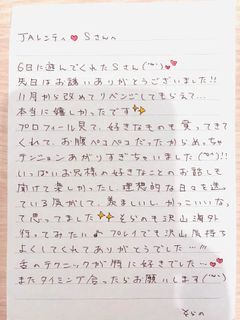 JAレンティ♥Sさんへ
6日に遊んでくれたSさん(˘³˘)💕
先日はお誘いありがとうございました!!
11月から改めてリベンジしてもらえて…
本当に嬉しかったです✨
プロフィール見て、好きなものも買ってきて
くれて、お腹ペコペコだったからめっちゃ
テンションあがりすぎちゃいました(˘³˘)!!
いっぱいお兄様の好きなことのお話しも
聞けて楽しかったし、理想的な日々を送っ
ている気がして、羨ましいし、かっこいいな
って思ってました✨そらのも沢山海外
行ってみたい♪プレイでも沢山気持ち
よくしてくれてありがとうでした…///
舌のテクニックが特に好きでした…♥
またタイミング合ったらお願いします(˘³˘)
そらの